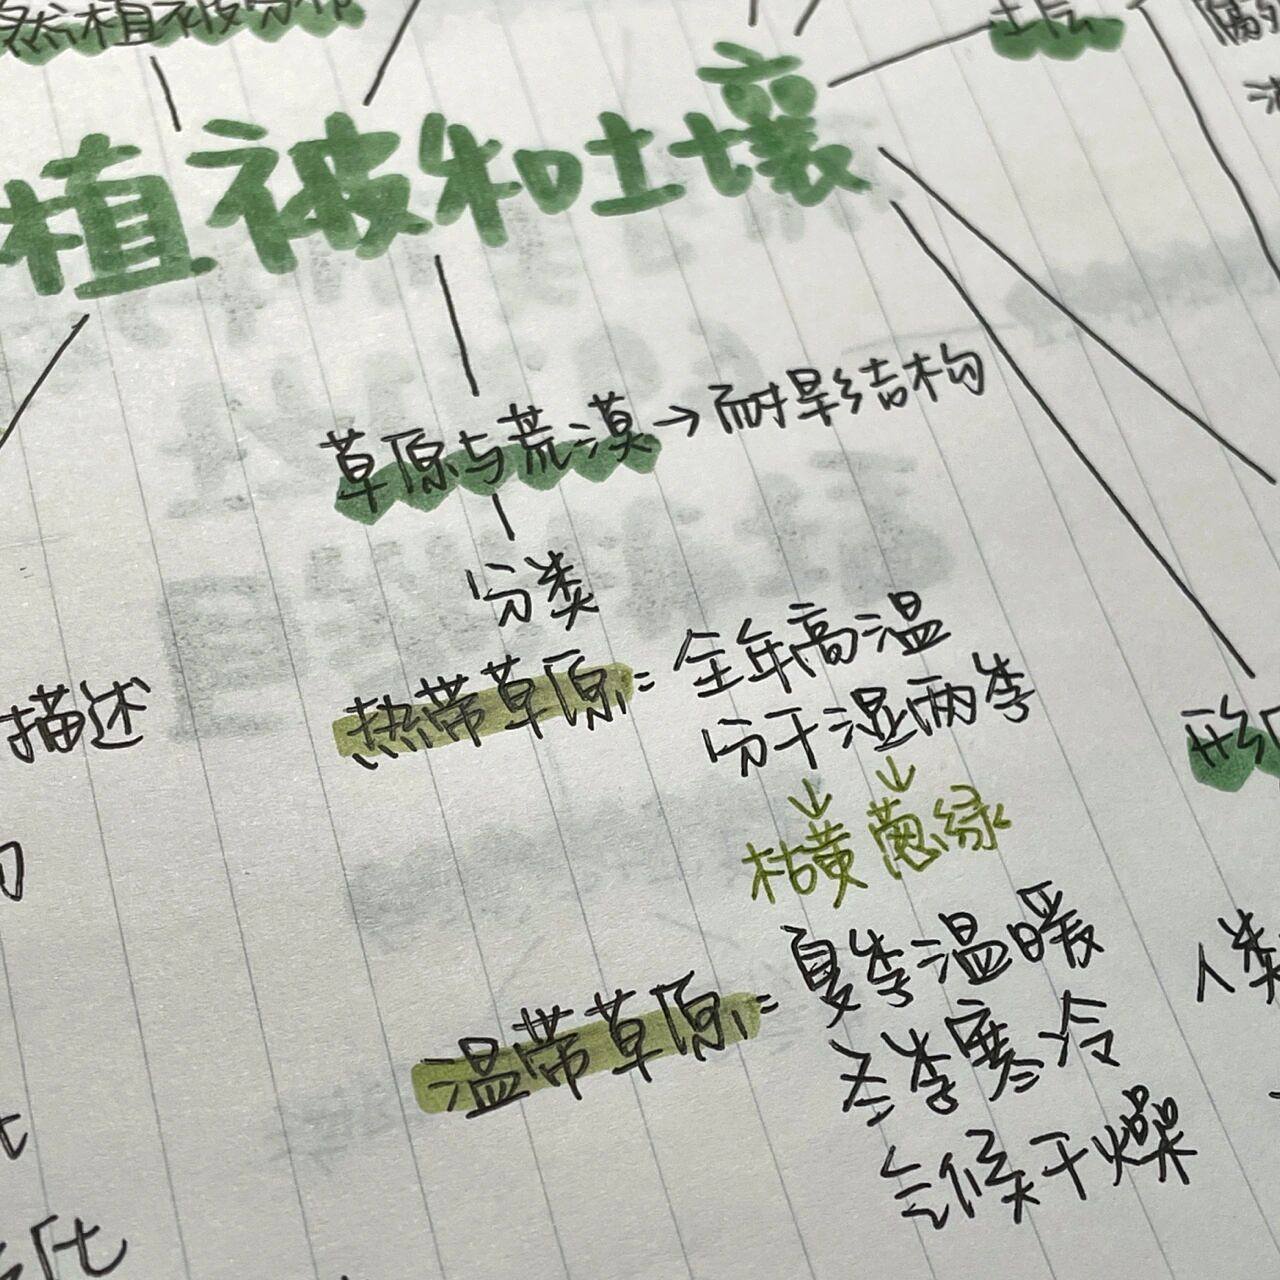 然植被分布
土层
植被和土壤
草原与荒漠→耐旱结构
分类
热带草原:全年高温
分干湿两季
↓ ↓
枯黄 葱绿
描述
温带草原:夏季温暖
冬季寒冷
气候干燥
形
人类